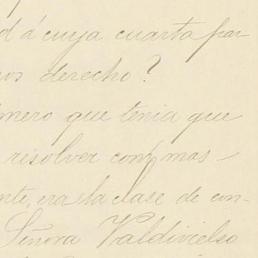 d á cuya cuarta par
os derecho?
mero que tenia que
resolver con mas
nte, era la clase de con-
Señora Valdivielso